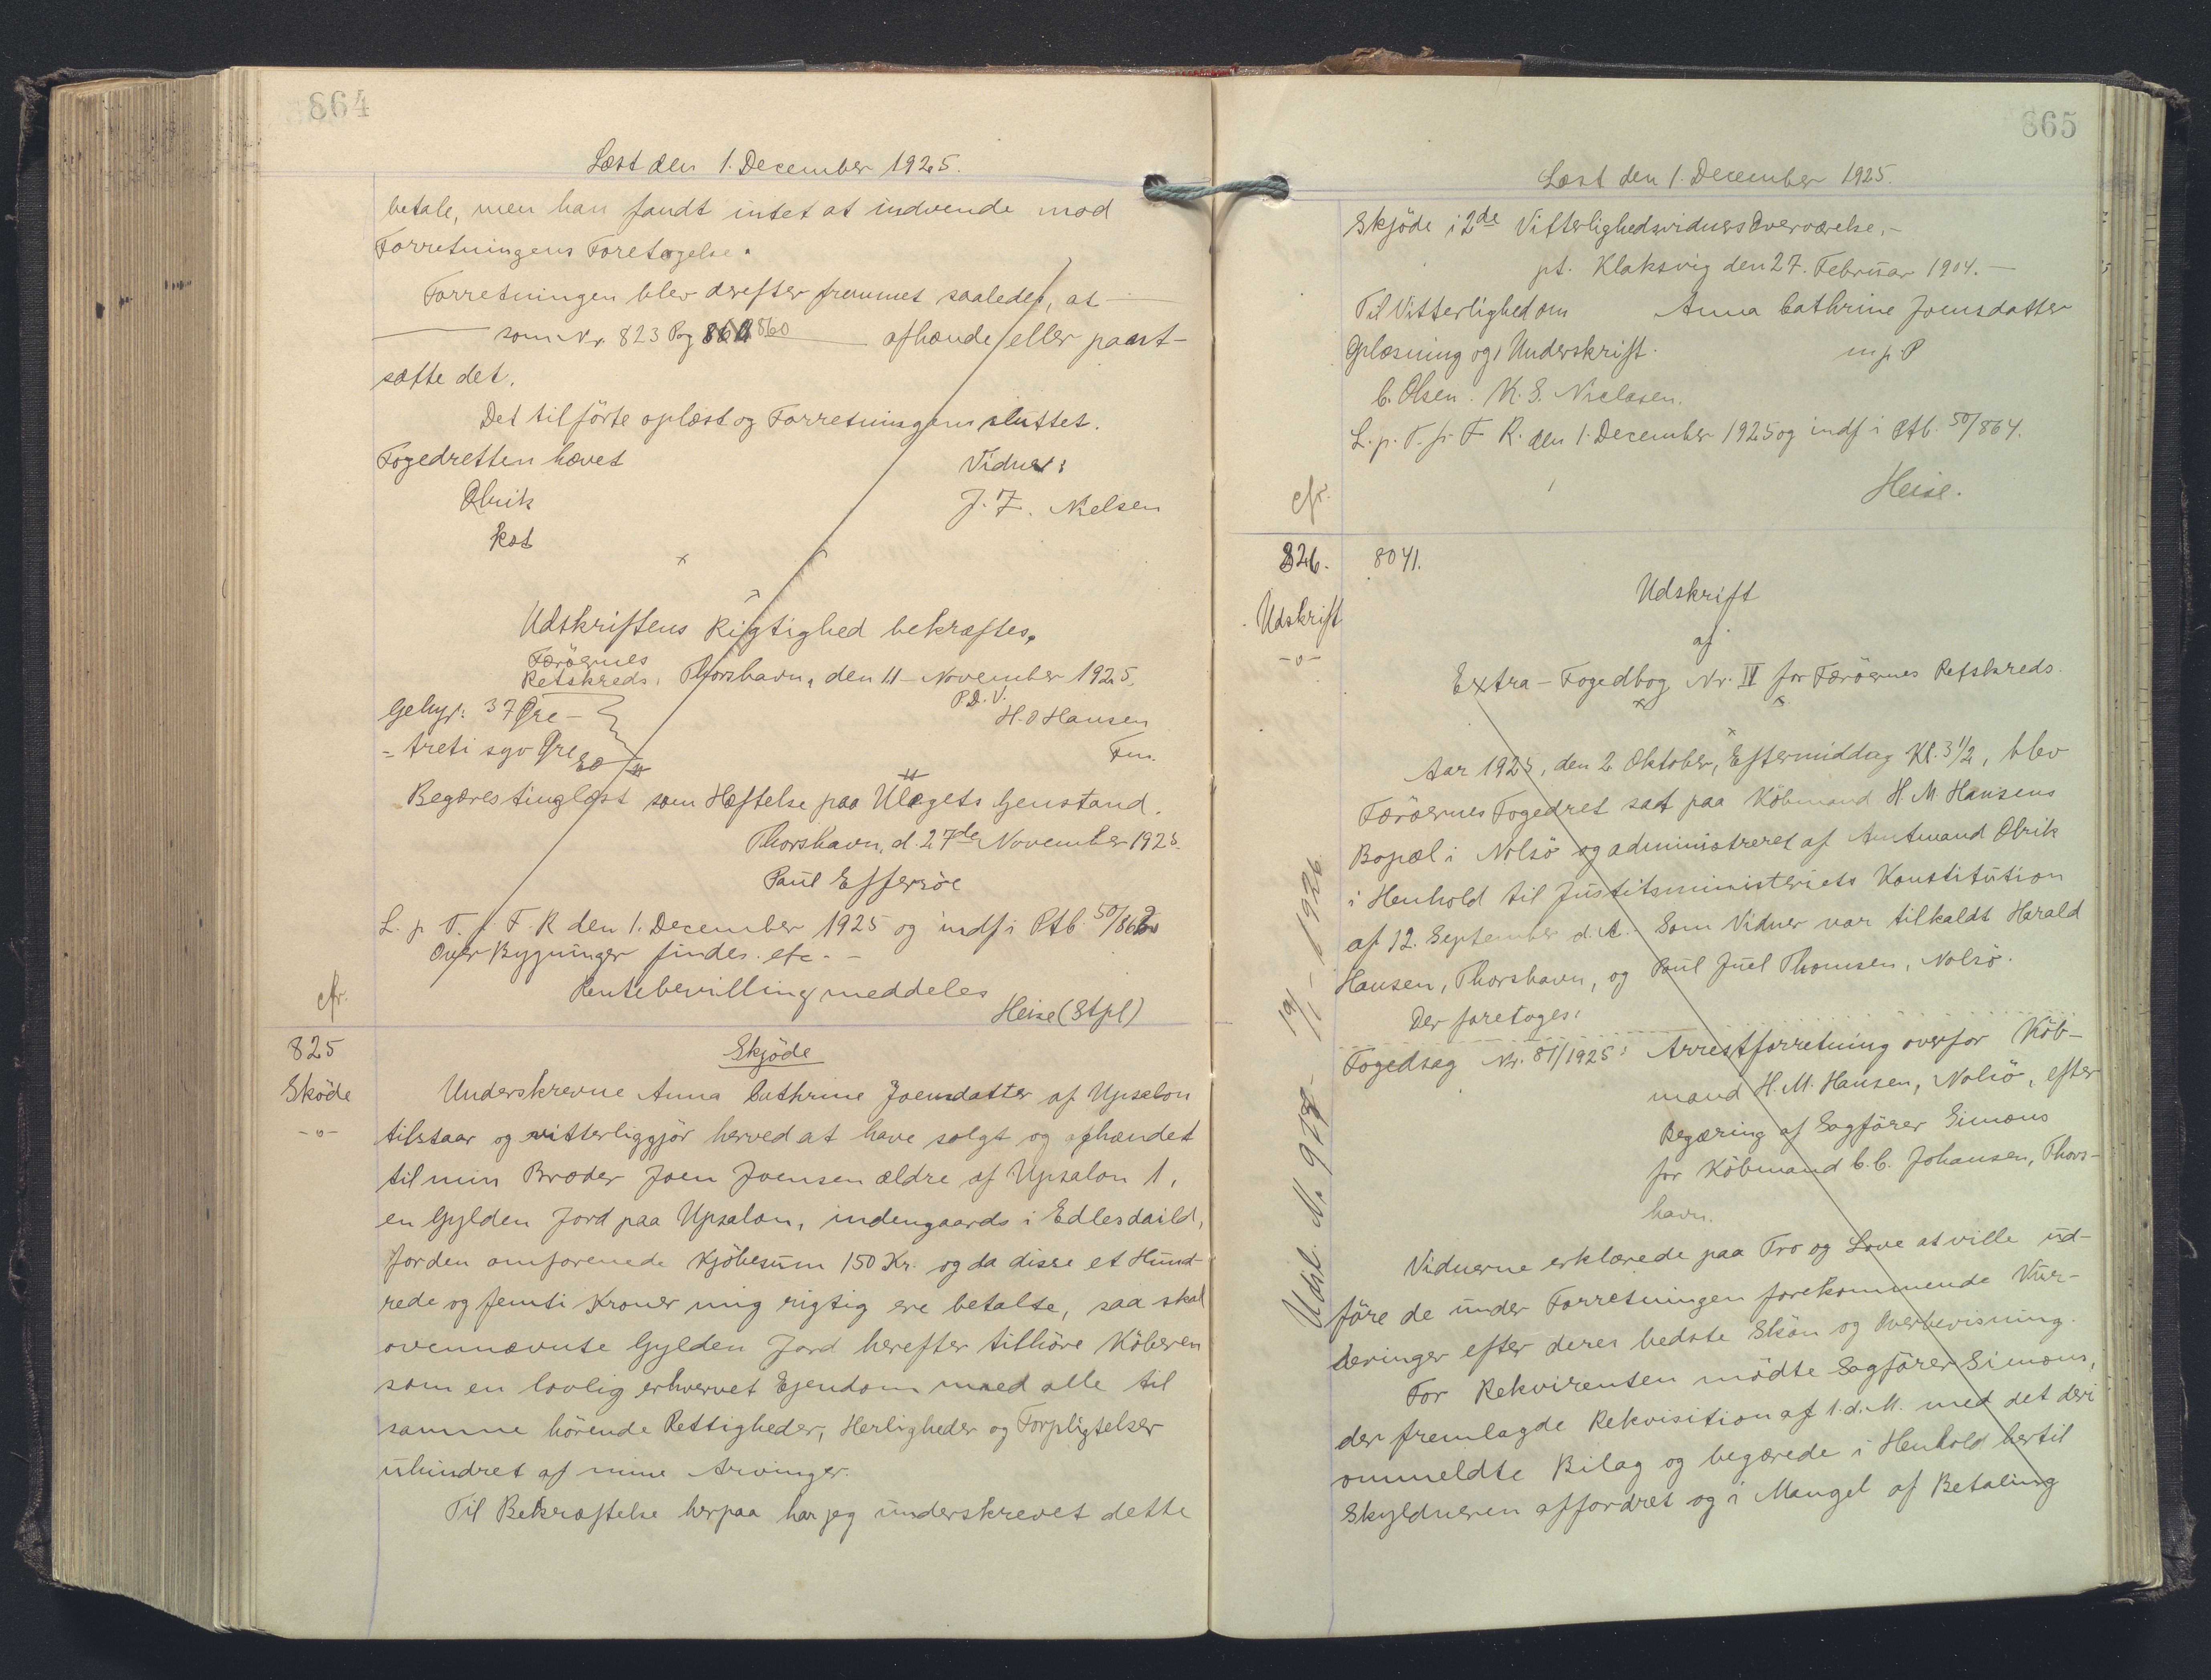 864
Læst den 1. December 1925.
betale, men han fandt intet at indvende mod
Forretningens Foretagelse.
Forretningen blev derefter fremmet saaledes, at
som Nr. 823 Pag 860 afhænde eller pant-
sætte det.
Det tilförte oplæst og Forretningen sluttet.
Fogedretten hævet
Vidner:
Olrik
J. F. Nielsen
kst
Udskriftens Rigtighed bekræftes.
Færöernes
Retskreds, Thorshavn, den 11 November 1925.
P.D.V.
Gebyr: 37 Øre -
H. O Hansen
- treti syv Øre
Fm.
Begæres tinglæst som Hæftelse paa Udlægets Genstand.
Thorshavn, d. 27de November 1925.
Paul Effersöe
L. p. T. f. F. R den 1. December 1925 og indf i Ptb. 50/862
Over Bygninger findes. etc. -
Rentebevilling meddeles
Heise (Stpl)
cfr.
825
Sköde
-o-
Skjöde
Underskrevne Anna Cathrine Joensdatter af Upsalon
tilstaar og vitterliggjör herved at have solgt og afhændet
til min Broder Joen Joensen ældre af Upsalon 1,
en Gylden Jord paa Upsalon, indengaards i Edlesdaild,
for den omforenede Kjöbesum 150 Kr. og da disse et Hund-
rede og femti Kroner mig rigtig ere betalte, saa skal
ovennævnte Gylden Jord herefter tilhöre Köberen
som en lovlig erhvervet Ejendom med alle til
samme hörende Rettigheder, Herligheder og Forpligtelser
uhindret af mine Arvinger.
Til Bekræftelse herpaa har jeg underskrevet dette
865
Læst den 1. December 1925.
Skjöde i 2de Vitterlighedsvidners Overværelse. -
pt. Klaksvig den 27. Februar 1904. -
Til Vitterlighed om Anna Cathrine Joensdatter
Oplæsning og Underskrift. m. p. P
C. Olsen. K. S. Niclasen.
L. p. T. f. F. R. den 1. December 1925 og indf i Ptb. 50/864.
Heise.
cfr.
826. 8041.
Udskrift
-o-
Udskrift
af
Extra-Fogedbog Nr. II for Færöernes Retskreds.
Aar 1925, den 2 Oktober, Eftermiddag Kl. 3 1/2, blev
Færöernes Fogedret sat paa Köbmand H M. Hansens
Bopæl i Nolsö og administreret af Amtmand Olrik
i Henhold til Justitsministeriets Konstitution
af 12. September d. A. Som Vidner var tilkaldt Harald
Hansen, Thorshavn, og Poul Juel Thomsen, Nolsö.
Der foretoges:
Fogedsag Nr. 81/1925: Arrestforretning overfor Köb-
mand H. M. Hansen, Nolsö, efter
Begæring af Sagförer Simons
for Köbmand C. C. Johansen, Thors-
havn.
Vidnerne erklærede paa Tro og Love at ville ud-
före de under Forretningen forekommende Vur-
deringer efter deres bedste Skön og Overbevisning.
For Rekvirenten mödte Sagförer Simons,
der fremlagde Rekvisition af 1. d. M. med det deri
ommeldte Bilag og begærede i Henhold hertil
Skyldneren affordret og i Mangel af Betaling
Udsl. Nr. 19/1 - 1926.